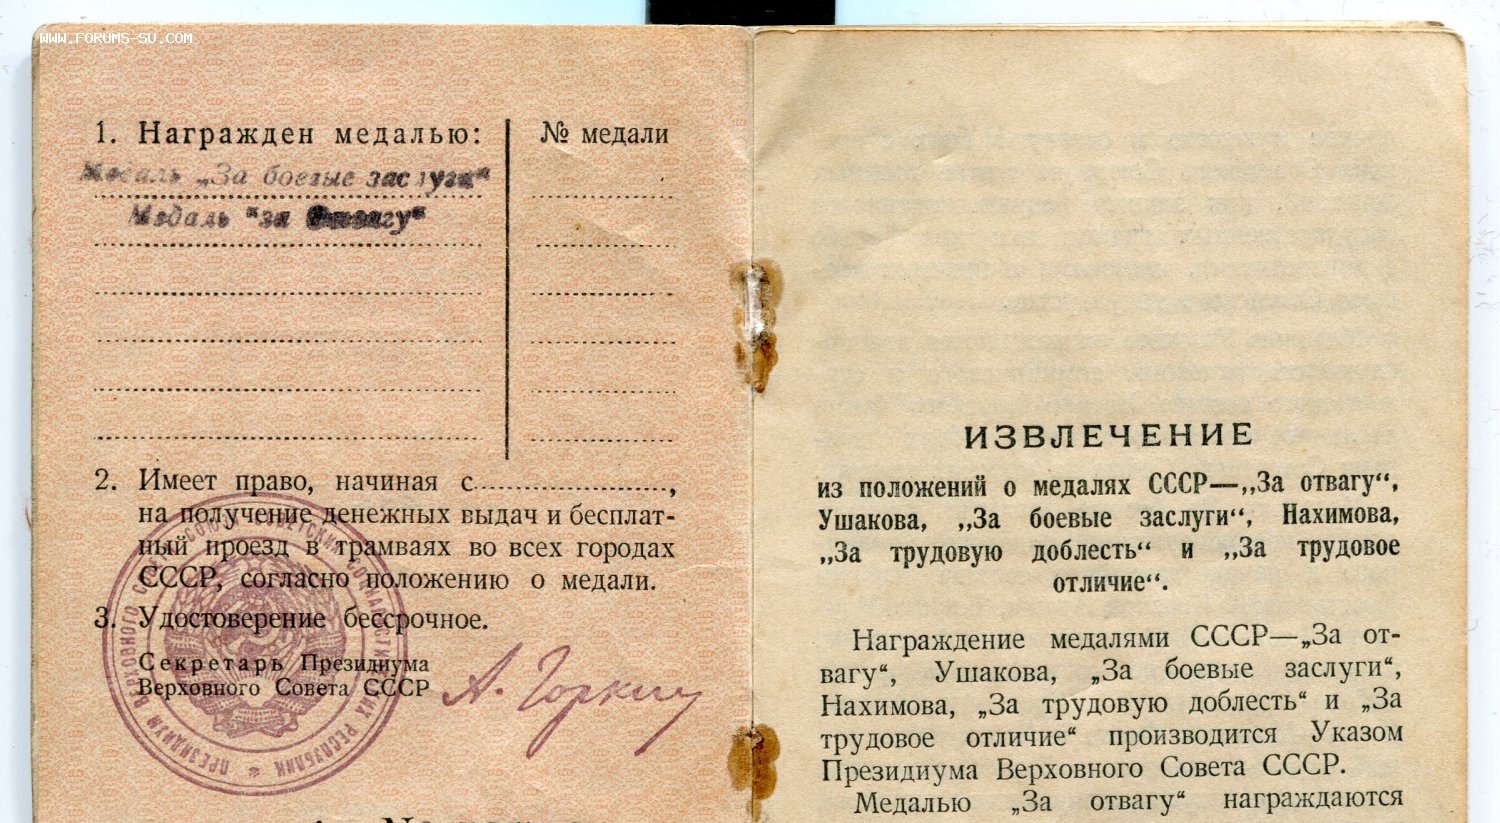 WWW.FORUMS-SU.COM
1. Награжден медалью:
№ медали
Медаль „За боевые заслуги"
Медаль "за Отвагу"
2. Имеет право, начиная с..........................,
на получение денежных выдач и бесплат-
ный проезд в трамваях во всех городах
СССР, согласно положению о медали.
3. Удостоверение бессрочное.
Секретарь Президиума
Верховного Совета СССР
А. Горкин
ПРЕЗИДИУМ ВЕРХОВНОГО СОВЕТА СОЮЗА СОВЕТСКИХ СОЦИАЛИСТИЧЕСКИХ РЕСПУБЛИК *
ИЗВЛЕЧЕНИЕ
из положений о медалях СССР—„За отвагу“,
Ушакова, „За боевые заслуги“, Нахимова,
„За трудовую доблесть“ и „За трудовое
отличие“.
Награждение медалями СССР—„За от-
вагу“, Ушакова, „За боевые заслуги“,
Нахимова, „За трудовую доблесть“ и „За
трудовое отличие“ производится Указом
Президиума Верховного Совета СССР.
Медалью „За отвагу“ награждаются